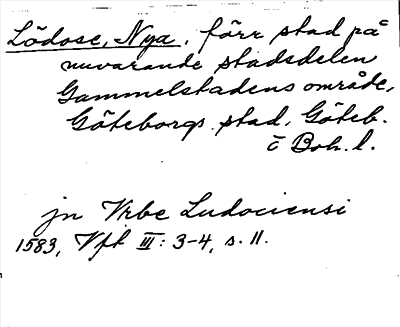 Lödose, Nya. förr stad på
nuvarande stadsdelen
Gammelstadens område,
Göteborgs stad, Göteb.
o Boh. l.
jn Vrbe Ludociensi
1583, Vft III: 3-4, s. 11.